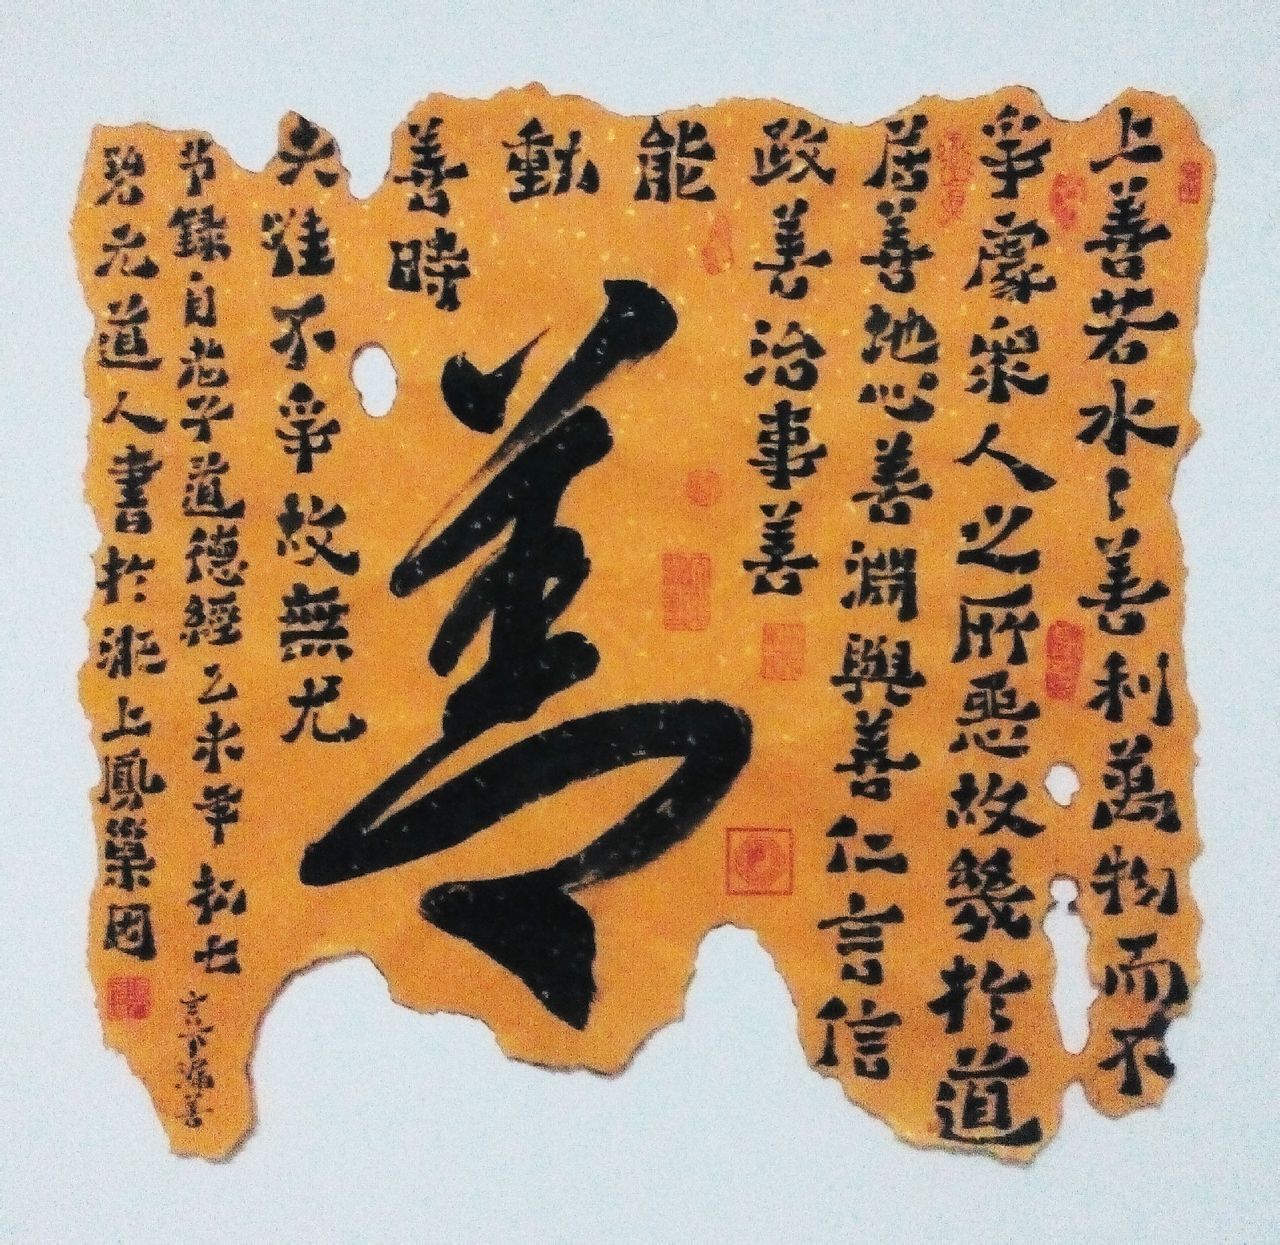 上善若水〻善利萬物而不
爭處衆人之所惡故幾於道
居善地心善淵與善仁言信
政善治事善
能
動
善時
善
夫唯不爭故無尤
节録自老子道德經乙未年
言下漏善
碧元道人書於上鳳巢